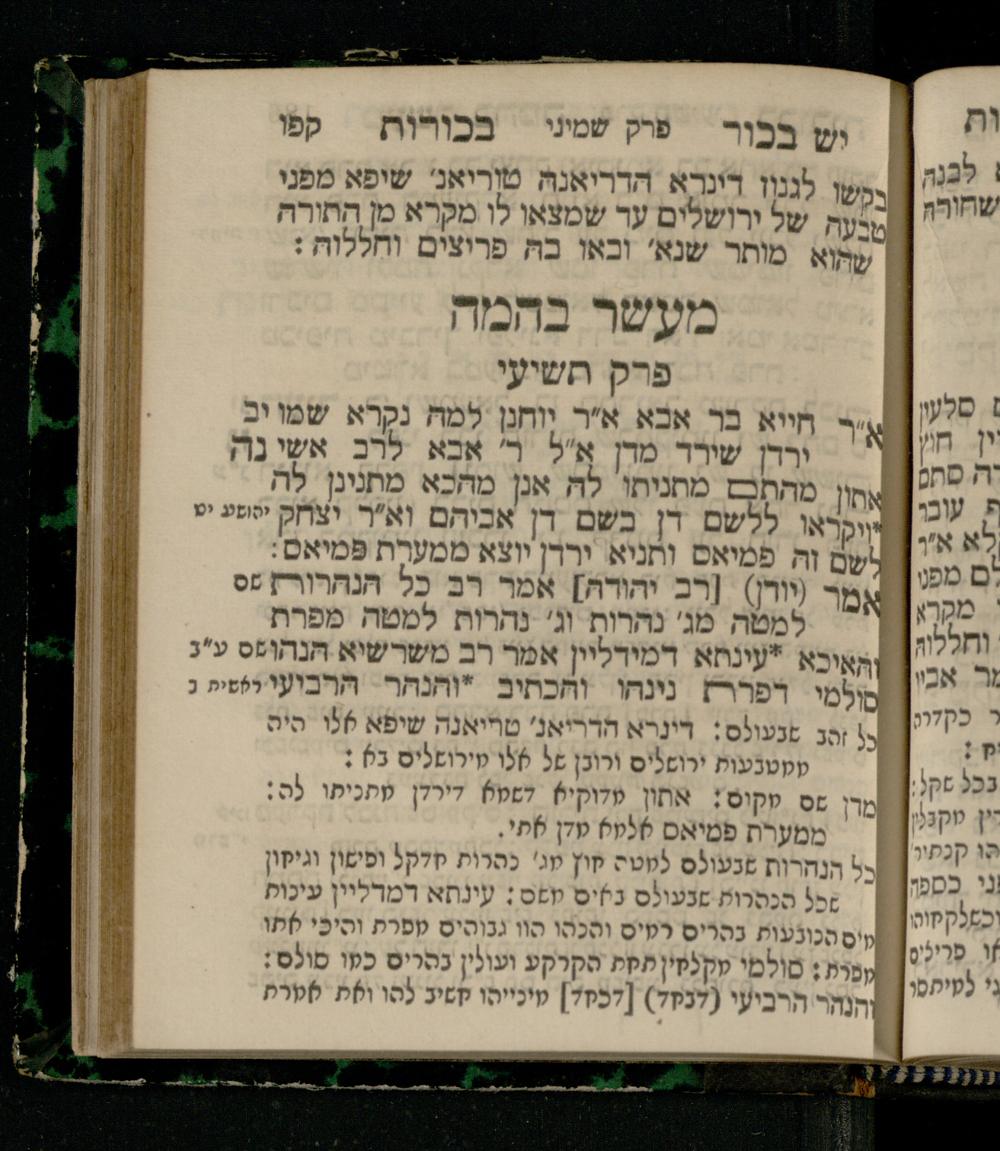 יש בכור פרק שמיני בכורות קפו
בקשו לגנוז דינרא הדריאנה טוריאנ׳ שיפא מפני
טבעה של ירושלים עד שמצאו לו מקרא מן התורה
שהוא מותר שנא׳ ובאו בה פריצים וחללוה :
מעשר בהמה
פרק תשיעי
א״ר חייא בר אבא א״ר יוחנן למה נקרא שמו יב
ירדן שירד מדן א״ל ר׳ אבא לרב אשי נה
אתון מהתם מתניתו לה אנן מהכא מתנינן לה
*ויקראו ללשם דן בשם דן אביהם וא״ר יצחק יהושע יט
לשם זה פמיאם ותניא ירדן יוצא ממערת פמיאם :
אמר (יודן) [רב יהודה] אמר רב כל הנהרות שם
למטה מג׳ נהרות וג׳ נהרות למטה מפרת
והאיכא *עינתא דמידליין אמר רב משרשיא הנהו שם ע״ב
סולמי דפרת נינהו והכתיב *והנהר הרביעי ראשית ב
כל זהב שבעולם : דינרא הדריאנ׳ טריאנה שיפא אלו היה
ממטבעות ירושלים ורובן של אלו מירושלים בא :
מדן שם מקום : אתון מדוקיא דשמא דירדן מתניתו לה :
ממערת פמיאם אלמא מדן אתי .
כל הנהרות שבעולם למטה חוץ מג׳ נהרות חדקל ופישון וגיחון
שכל הנהרות שבעולם באים משם : עינתא דמדליין עינות
מים הנובעות בהרים רמים והנהו הוו גבוהים מפרת והיכי אתו
מפרת : סולמי מקלחין תחת הקרקע ועולין בהרים כמו סולם :
והנהר הרביעי (דבחד) [דכחד] מינייהו חשיב להו ואת אמרת